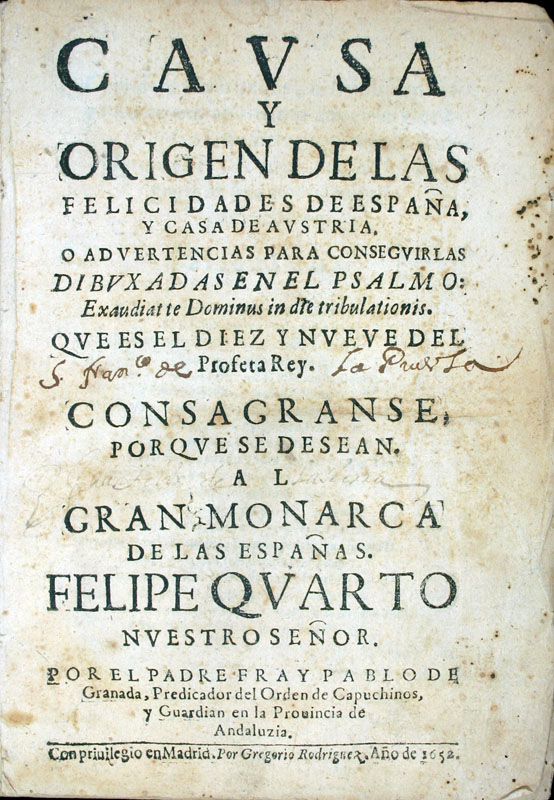 CAVSA
Y
ORIGEN DE LAS
FELICIDADES DE ESPAÑA,
Y CASA DE AVSTRIA.
O ADVERTENCIAS PARA CONSEGVIRLAS
DIBVXADAS EN EL PSALMO:
Exaudiat te Dominus in die tribulationis.
QVE ES EL DIEZ Y NVEVE DEL
S. Fran.co de Profeta Rey. La Puerta
CONSAGRANSE,
PORQVE SE DESEAN.
AL
GRAN MONARCA
DE LAS ESPAÑAS.
FELIPE QVARTO
NVESTRO SEÑOR.
POR EL PADRE FRAY PABLO DE
Granada, Predicador del Orden de Capuchinos,
y Guardian en la Prouincia de
Andaluzia.
Con priuilegio en Madrid. Por Gregorio Rodriguez. Año de 1652.